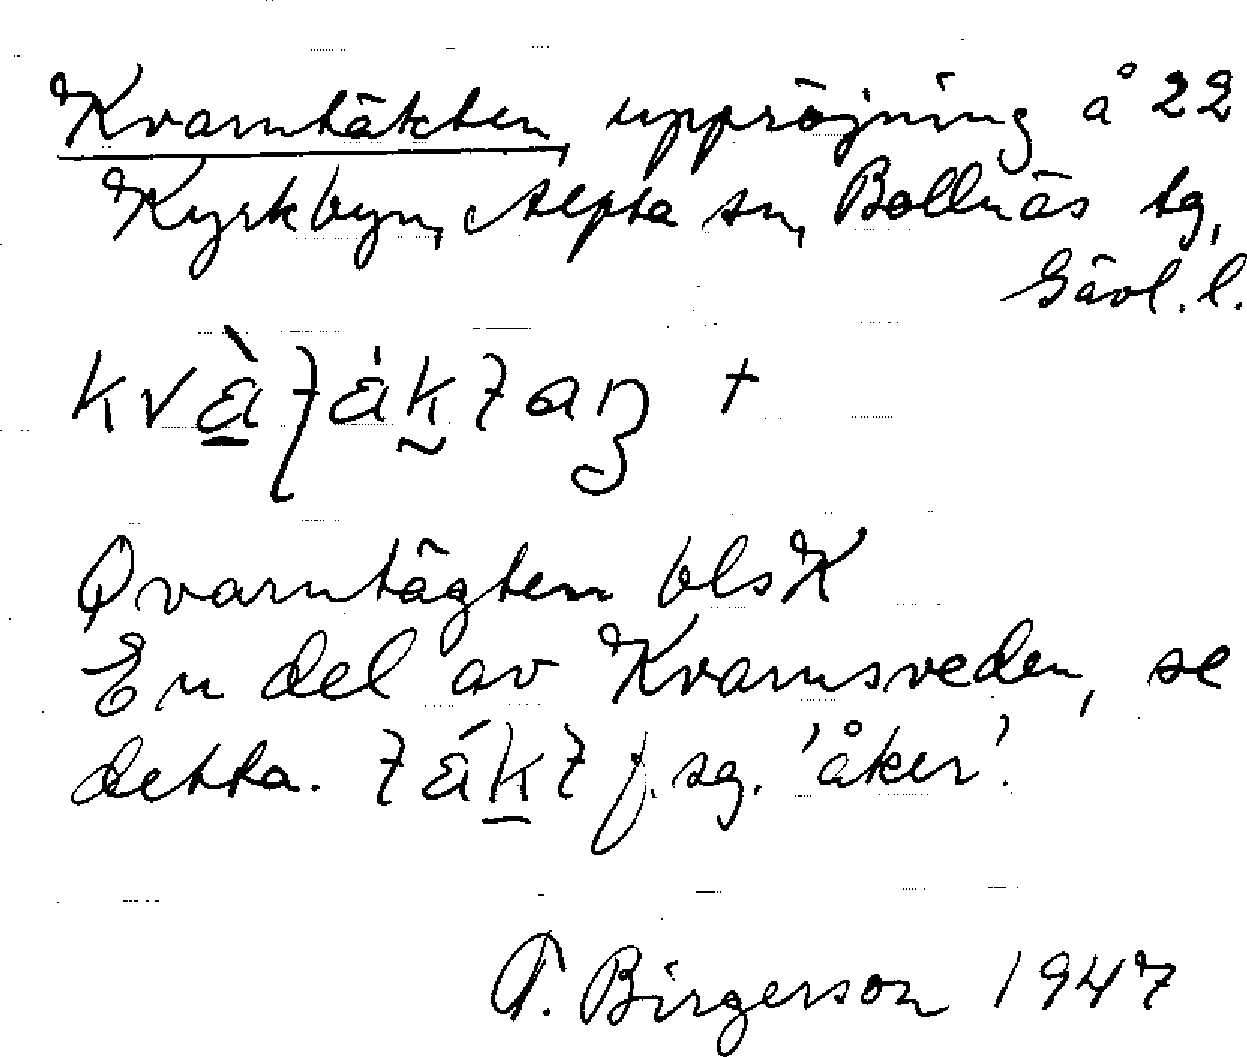 Kvarntäkten, uppröjning å 22
Kyrkbyn, Alfta sn, Bollnäs tg,
Gävl. l.
Qvarntägten blsK
En del av Kvarnsveden, se
detta. f. sg. 'åker'.
T. Birgerson 1947